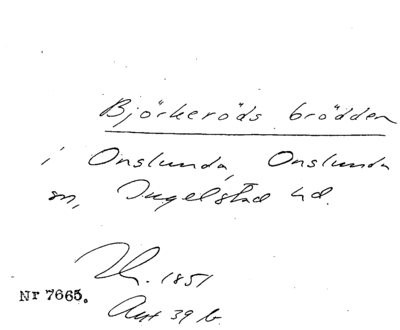 Björkeröds brödden
i Onslunda, Onslunda
sn, Ingelstad hd.
1851
Nr 7665.
39 b.